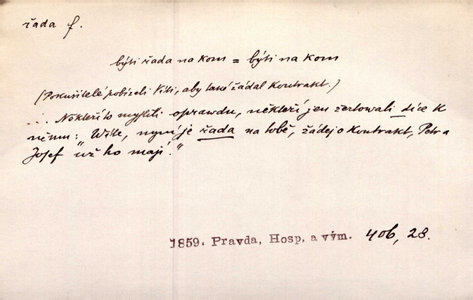 řada f.
býti řada na kom = býti na kom
(Pokušitelé pobízeli Víta, aby také žádal kontrakt.)
... Někteří to myslili opravdu, někteří jen žertovali sice k
němu: Víte, nyní je řada na tobě, žádej o kontrakt, Petr a
Josef "už ho mají."
1859. Pravda, Hosp. a vým. 406, 28.